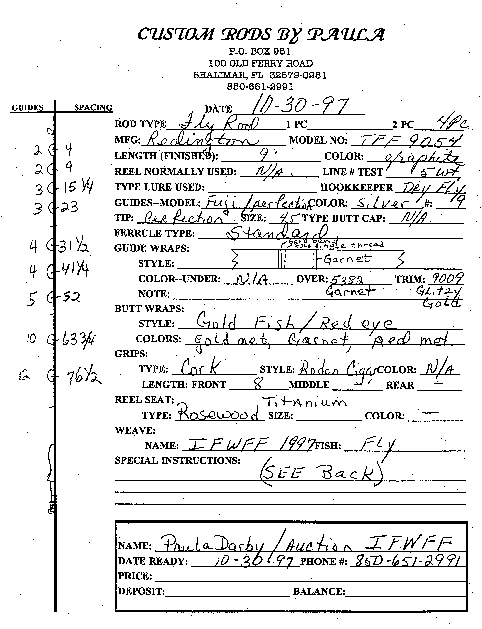 CUSTOM RODS BY PAULA
P.O. BOX 981
100 OLD FERRY ROAD
SHALIMAR, FL 32579-0981
850-651-2991
GUIDES SPACING DATE 10-30-97
ROD TYPE Fly Rod 1 PC 2 PC 4Pc
MFG: Redington MODEL NO: TFF 9054
LENGTH (FINISHED): 9' COLOR: graphite
REEL NORMALLY USED: N/A LINE # TEST 5 wt
TYPE LURE USED: HOOKKEEPER Dry Fly
GUIDES-MODEL: Fuji/perfection COLOR: Silver #: 9
TIP: Perfection SIZE: 4.5 TYPE BUTT CAP: N/A
FERRULE TYPE: Standard
GUIDE WRAPS: single thread
STYLE: Garnet
COLOR--UNDER: N/A OVER: 5382 TRIM: 9009
NOTE: Garnet Glitzy Gold
BUTT WRAPS:
STYLE: Gold Fish / Red eye
COLORS: gold met, Garnet, red met.
GRIPS:
TYPE: Cork STYLE: Roden Cigar COLOR: N/A
LENGTH: FRONT 8 MIDDLE — REAR —
REEL SEAT: Titanium
TYPE: Rosewood SIZE: COLOR: —
WEAVE:
NAME: IFWFF 1997 FISH: Fly
SPECIAL INSTRUCTIONS: (SEE Back)
2 4
2 9
3 15 1/4
3 23
4 31 1/2
4 41 1/4
5 52
10 63 3/4
12 76 1/2
NAME: Paula Darby / Auction IFWFF
DATE READY: 10-30-97 PHONE #: 850-651-2991
PRICE:
DEPOSIT: BALANCE: